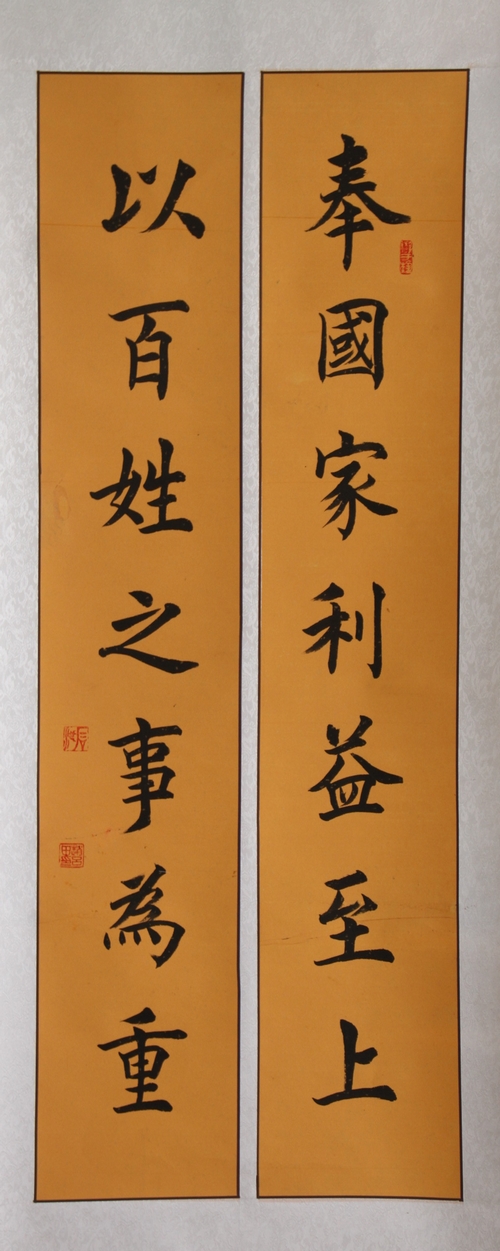 奉國家利益至上
以百姓之事為重